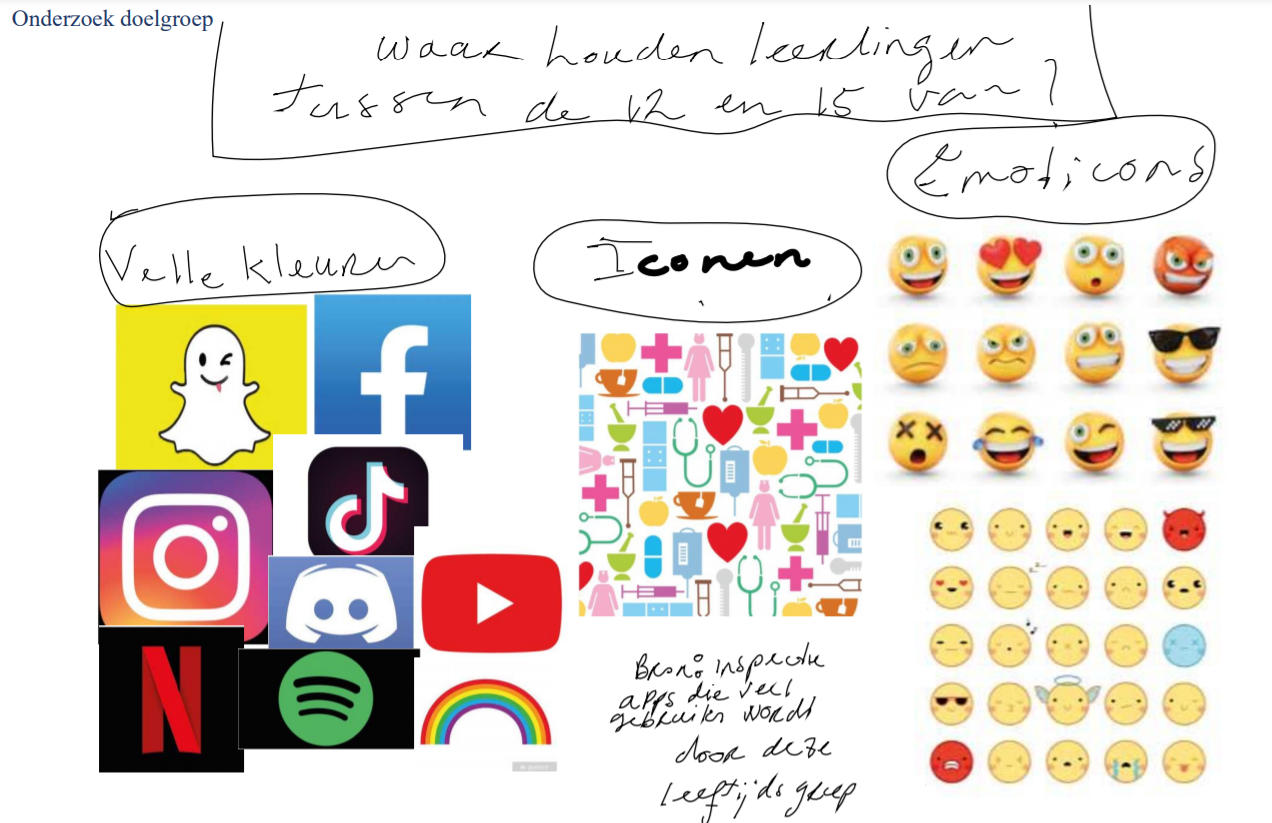 Onderzoek doelgroep
waar houden leerlingen
tussen de 12 en 15 van?
Emoticons
Velle kleuren
Iconen
Bron: inspectie
apps die veel
gebruikt wordt
door deze
leeftijdsgroep